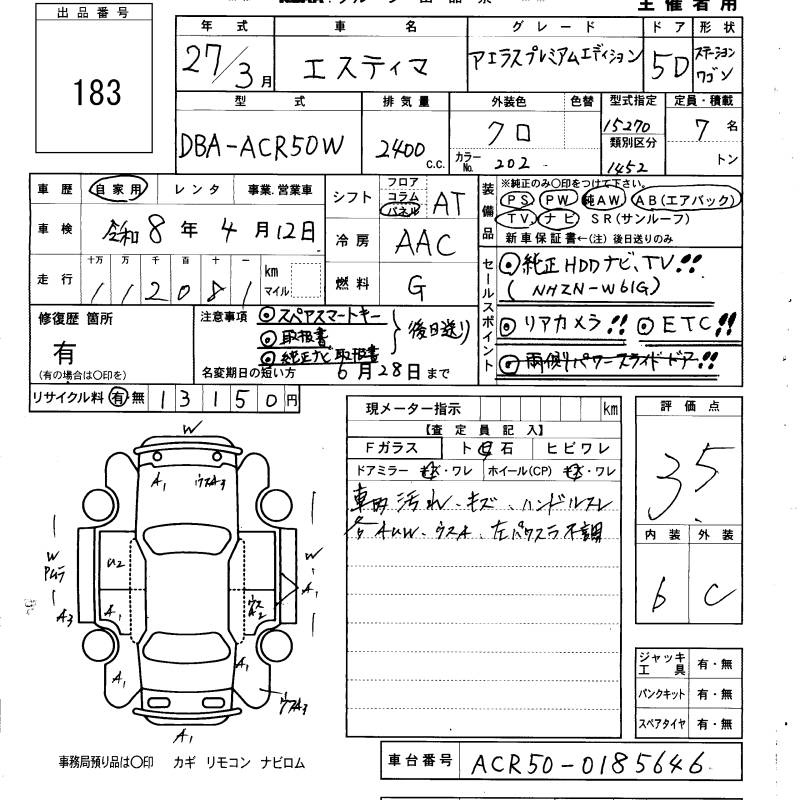 出品番号
183
主催者用
年式 車名 グレード ドア 形状
27/3月 エスティマ アエラスプレミアムエディション 5D ステーションワゴン
型式 排気量 外装色 色替 型式指定 定員・積載
DBA-ACR50W 2400c.c. クロ 15270 7名
カラーNo. 202 類別区分 1452 トン
車歴 自家用 レンタ 事業.営業車
車検 令和8年4月12日
走行 十万 万 千 百 十 一 km マイル
112081
シフト フロア コラム パネル AT
冷房 AAC
燃料 G
装備品
※純正のみ〇印をつけて下さい。
PS PW 純AW AB(エアバック)
TV ナビ SR(サンルーフ)
新車保証書←(注) 後日送りのみ
セールスポイント
◎純正HDDナビ、TV!!
(NHZN-W61G)
◎リアカメラ!! ◎ETC!!
◎両側パワースライドドア!!
修復歴 箇所
有
(有の場合は〇印を)
注意事項
◎スペアスマートキー
◎取扱書
◎純正ナビ取扱書
後日送り
名変期日の短い方 6月28日まで
リサイクル料 有 無 13150円
現メーター指示 km
【査定員記入】
Fガラス ト 石 ヒビワレ
ドアミラー キズ・ワレ ホイール(CP) キズ・ワレ
車内汚れ、キズ、ハンドルスレ
各AUW、ウスA、左パワスラ不調
評価点
3.5
内装 外装
6 C
ジャッキ工具 有・無
パンクキット 有・無
スペアタイヤ 有・無
W
A1 ウスA3
W
U2
W
Pムラ
A1
A3
A1
ウス
A2
A1
A1
ウスA3
A1
事務局預り品は〇印 カギ リモコン ナビロム
車台番号 ACR50-0185646